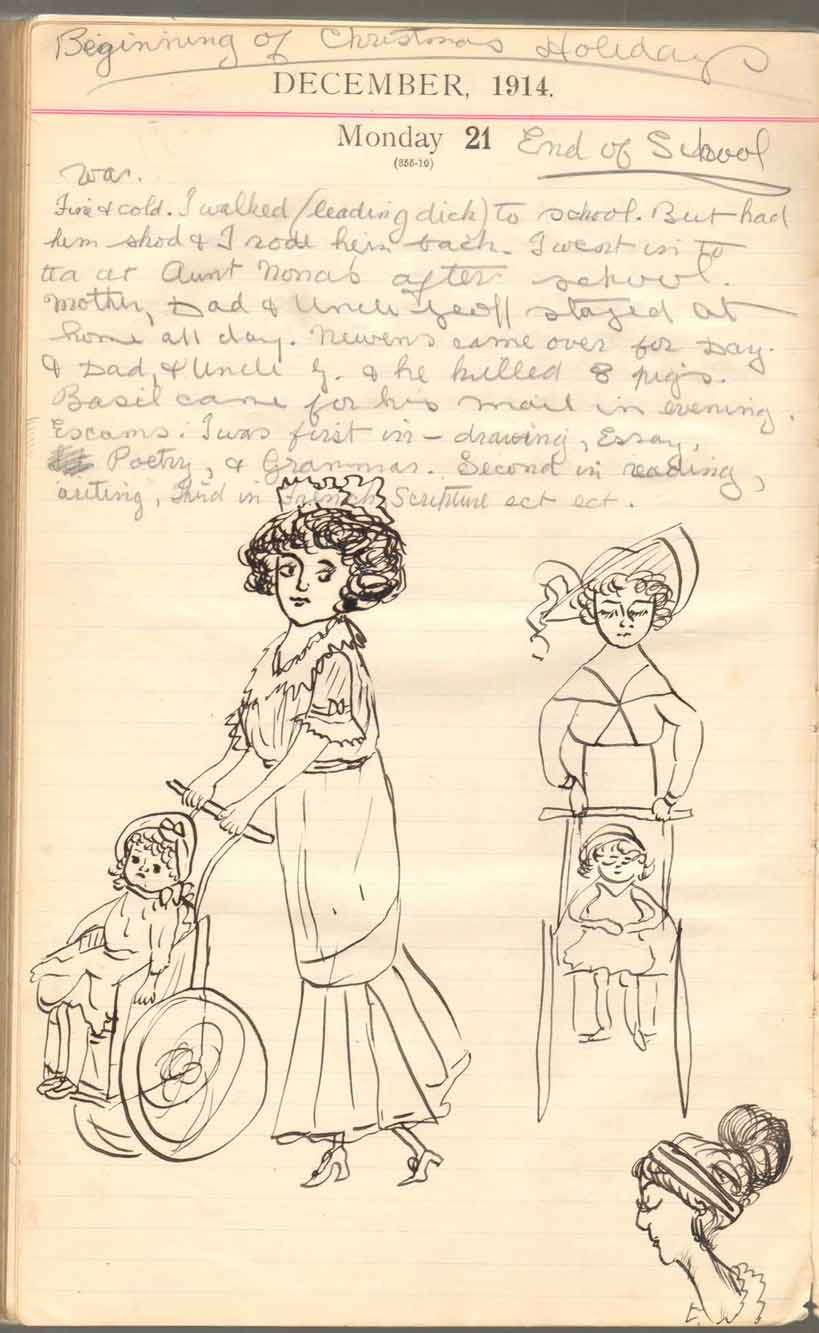 Beginning of Christmas Holidays
DECEMBER, 1914.
Monday 21 End of School
(355-10)
war.
Fine & cold. I walked (leading dick) to school. But had
him shod & I rode him back. I went in to
tea at Aunt Nona's after school.
Mother, Dad & Uncle Geoff stayed at
home all day. Newens came over for Day.
& Dad, & Uncle G. & he killed 8 pigs.
Basil came for his mail in evening.
Exams: I was first in - drawing, Essay,
Poetry, & Grammar. Second in reading,
writing, third in French Scripture ect ect.